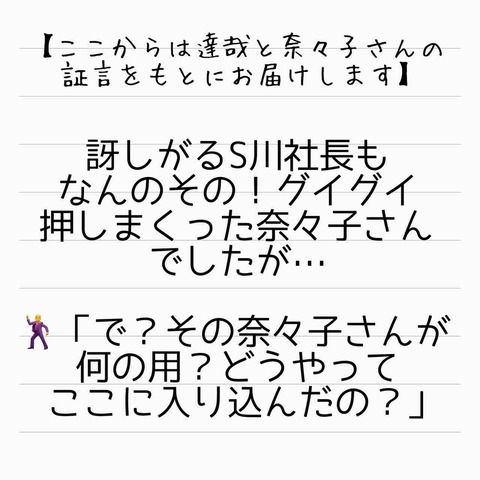 【ここからは達哉と奈々子さんの
証言をもとにお届けします】
訝しがるS川社長も
なんのその！グイグイ
押しまくった奈々子さん
でしたが…
🕺「で？その奈々子さんが
何の用？どうやって
ここに入り込んだの？」